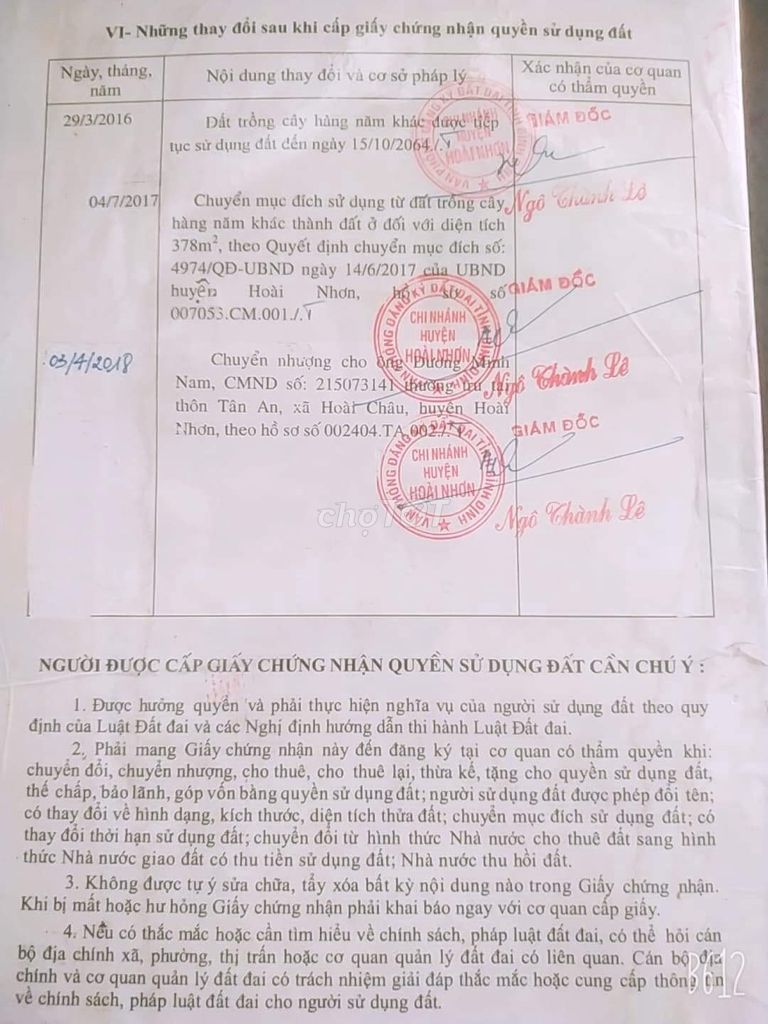 VI- Những thay đổi sau khi cấp giấy chứng nhận quyền sử dụng đất
Ngày, tháng, năm
Nội dung thay đổi và cơ sở pháp lý
Xác nhận của cơ quan có thẩm quyền
29/3/2016
Đất trồng cây hàng năm khác được tiếp
tục sử dụng đất đến ngày 15/10/2064./.
GIÁM ĐỐC
Ngô Thành Lê
04/7/2017
Chuyển mục đích sử dụng từ đất trồng cây
hàng năm khác thành đất ở đối với diện tích
378m², theo Quyết định chuyển mục đích số:
4974/QĐ-UBND ngày 14/6/2017 của UBND
huyện Hoài Nhơn, hồ sơ số
007053.CM.001./.
GIÁM ĐỐC
Ngô Thành Lê
03/4/2018
Chuyển nhượng cho ông Dương Minh
Nam, CMND số: 215073141 thường trú tại
thôn Tân An, xã Hoài Châu, huyện Hoài
Nhơn, theo hồ sơ số 002404.TA.002./.
GIÁM ĐỐC
Ngô Thành Lê
VĂN PHÒNG ĐĂNG KÝ ĐẤT ĐAI TỈNH BÌNH ĐỊNH
CHI NHÁNH
HUYỆN
HOÀI NHƠN
VĂN PHÒNG ĐĂNG KÝ ĐẤT ĐAI TỈNH BÌNH ĐỊNH
CHI NHÁNH
HUYỆN
HOÀI NHƠN
VĂN PHÒNG ĐĂNG KÝ ĐẤT ĐAI TỈNH BÌNH ĐỊNH
CHI NHÁNH
HUYỆN
HOÀI NHƠN
chợTỐT
NGƯỜI ĐƯỢC CẤP GIẤY CHỨNG NHẬN QUYỀN SỬ DỤNG ĐẤT CẦN CHÚ Ý :
1. Được hưởng quyền và phải thực hiện nghĩa vụ của người sử dụng đất theo quy
định của Luật Đất đai và các Nghị định hướng dẫn thi hành Luật Đất đai.
2. Phải mang Giấy chứng nhận này đến đăng ký tại cơ quan có thẩm quyền khi:
chuyển đổi, chuyển nhượng, cho thuê, cho thuê lại, thừa kế, tặng cho quyền sử dụng đất,
thế chấp, bảo lãnh, góp vốn bằng quyền sử dụng đất; người sử dụng đất được phép đổi tên;
có thay đổi về hình dạng, kích thước, diện tích thửa đất; chuyển mục đích sử dụng đất; có
thay đổi thời hạn sử dụng đất; chuyển đổi từ hình thức Nhà nước cho thuê đất sang hình
thức Nhà nước giao đất có thu tiền sử dụng đất; Nhà nước thu hồi đất.
3. Không được tự ý sửa chữa, tẩy xóa bất kỳ nội dung nào trong Giấy chứng nhận.
Khi bị mất hoặc hư hỏng Giấy chứng nhận phải khai báo ngay với cơ quan cấp giấy.
4. Nếu có thắc mắc hoặc cần tìm hiểu về chính sách, pháp luật đất đai, có thể hỏi cán
bộ địa chính xã, phường, thị trấn hoặc cơ quan quản lý đất đai có liên quan. Cán bộ địa
chính và cơ quan quản lý đất đai có trách nhiệm giải đáp thắc mắc hoặc cung cấp thông tin
về chính sách, pháp luật đất đai cho người sử dụng đất.
B612